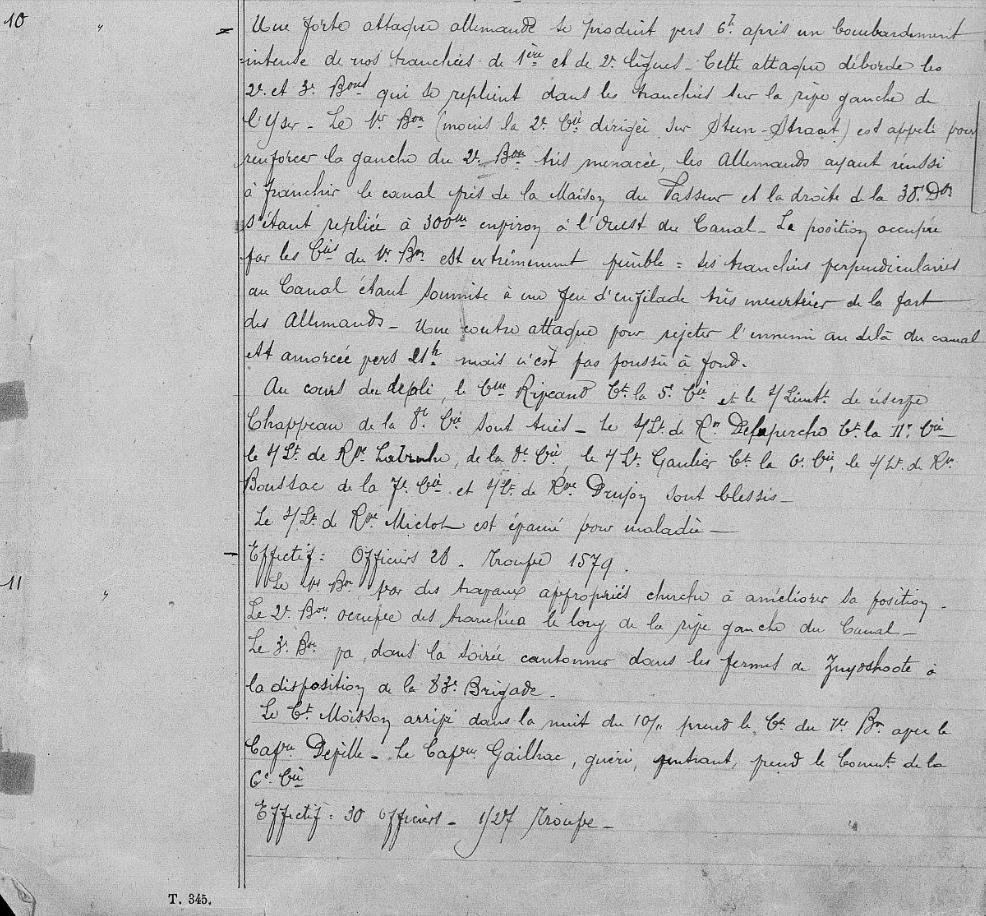 10 " Une forte attaque allemande se produit vers 6h après un bombardement
intense de nos tranchées de 1ère et de 2e lignes - Cette attaque déborde les
2e et 3e Bons qui se replient dans les tranchées sur la rive gauche de
l'Yser - Le 1er Bon (moins la 2e Cie dirigée sur Steen-Straat) est appelé pour
renforcer la gauche du 2e Bon très menacée, les Allemands ayant réussi
à franchir le canal près de la Maison du Passeur et la droite de la 38e Don
s'étant repliée à 300m environ à l'Ouest du Canal - La position occupée
par les Cies du 1er Bon est extrêmement pénible = ses tranchées perpendiculaires
au Canal étant soumise à un feu d'enfilade très meurtrier de la part
des Allemands - Une contre attaque pour rejeter l'ennemi au delà du canal
est amorcée vers 21h mais n'est pas poussée à fond.
Au cours du repli, le Cne Ripeaud Ct la 5e Cie et le S/Lieutt de réserve
Chappeau de la 8e Cie sont tués - le S/Lt de Rve Delaperche Ct la 11e Cie -
le S/Lt de Rve de la 8e Cie, le S/Lt Gaulier Ct la 6e Cie, le S/Lt de Rve
Boussac de la 7e Cie et S/Lt de Rve Drujon sont blessés -
Le S/Lt de Rve Miclot est évacué pour maladie -
Effectif : Officiers 28 - Troupe 1579.
11 " Le 1er Bon par des travaux appropriés cherche à améliorer sa position -
Le 2e Bon occupe des tranchées le long de la rive gauche du Canal -
Le 3e Bon va, dans la soirée cantonner dans les fermes de Zuydshoote à
la disposition de la 83e Brigade -
Le Ct Moisson arrivé dans la nuit du 10/11 prend le Ct du 1er Bon avec le
Capne Deville - Le Capne Gailhac, guéri, rentrant, prend le Commt de la
6e Cie
Effectif : 30 Officiers - Troupe -
T. 345.